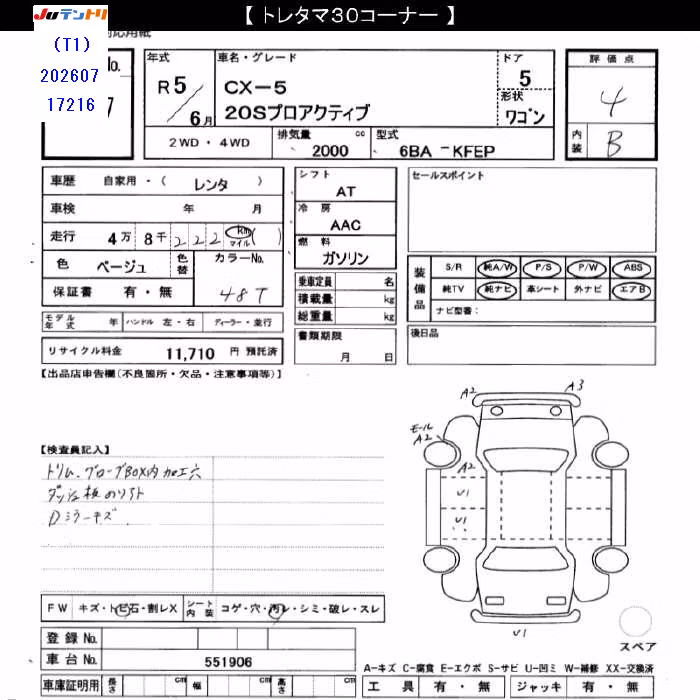 【 トレタマ30コーナー 】
JUテントリ
(T1)
202607
17216
年式
R 5/6月
車名・グレード
CX-5
20Sプロアクティブ
ドア
5
形状
ワゴン
評価点
4
内装
B
2WD・4WD
排気量
2000 cc
型式
6BA-KFEP
車歴 自家用・( レンタ )
車検 年 月
走行 4万 8千 222 km マイル ( )
色 ベージュ 色替
カラーNo.
48T
保証書 有・無
モデル年式 年 ハンドル 左・右 ディーラー・並行
リサイクル料金 11,710 円 預託済
シフト
AT
冷房
AAC
燃料
ガソリン
乗車定員 名
積載量 kg
総重量 kg
書類期限
月 日
セールスポイント
装備品
S/R 純A/W P/S P/W ABS
純TV 純ナビ 革シート 外ナビ エアB
ナビ型番:
後日品
【出品店申告欄(不良箇所・欠品・注意事項等)】
【検査員記入】
トリム、グローブBOX内 加工穴
ダッシュ板のリフト
Dミラーキズ
A2
A3
モール
A2
A2
U1
U1
U1
スペア
FW キズ・トビ石・割レX
シート内装 コゲ・穴・汚レ・シミ・破レ・スレ
登録No.
車台No. 551906
車庫証明用 長さ cm 幅 cm 高さ cm
A-キズ C-腐食 E-エクボ S-サビ U-凹ミ W-補修 XX-交換済
工具 有・無 ジャッキ 有・無